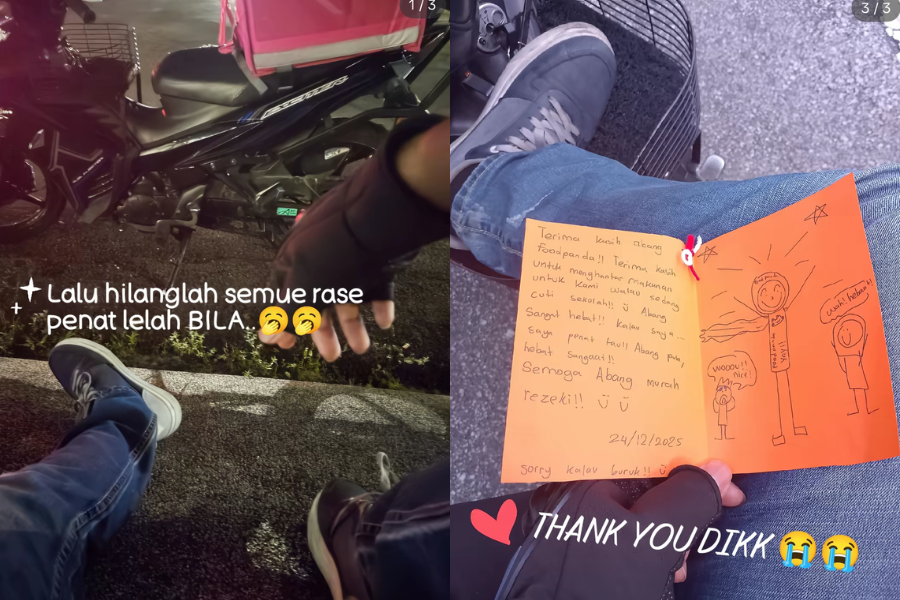 1/3
Lalu hilanglah semue rase
penat lelah BILA..🥱🥱
3/3
Terima kasih abang
Foodpanda!! Terima kasih
untuk menghantar makanan
untuk kami walau sedang
cuti sekolah!! Ü Abang
Sangat hebat!! Kalau saya...
saya penat tau!! Abang pula,
hebat sangaat!!
Semoga Abang murah
rezeki!! Ü Ü
24/12/2025
sorry kalau buruk!! Ü
foodpanda
Yay!!
wooou!!
nice
wah! hebat!!
THANK YOU DIKK 😭😭